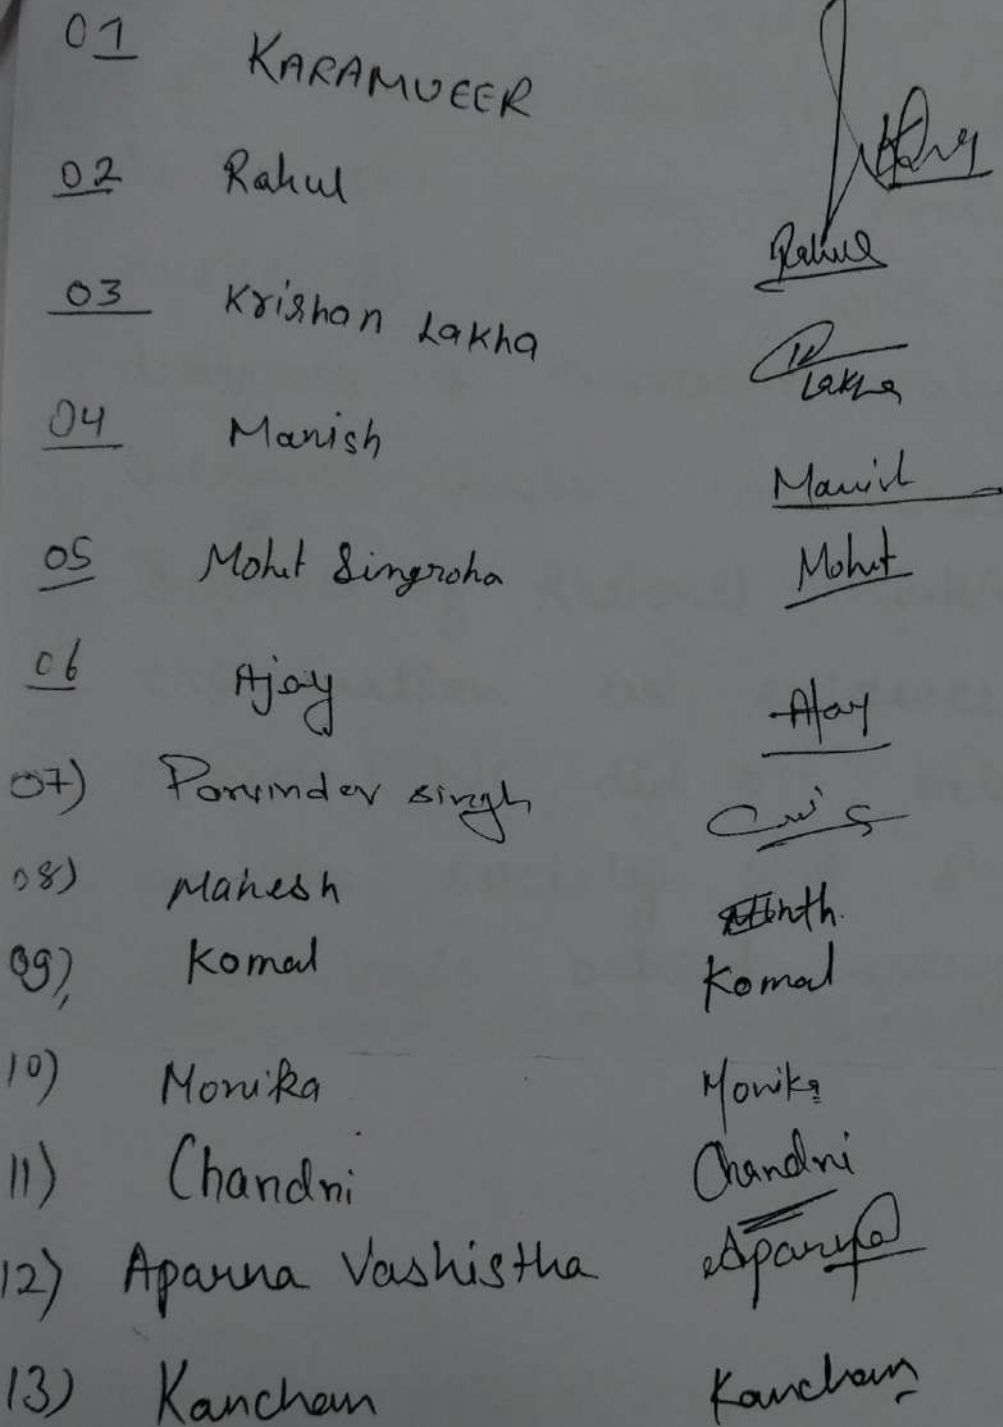 01 KARAMVEER
02 Rahul Rahul
03 Krishan Lakha Lakha
04 Manish Manish
05 Mohit Singroha Mohit
06 Ajay Ajay
07) Parvinder singh
08) Mahesh
09) Komal Komal
10) Monika Monika
11) Chandni Chandni
12) Aparna Vashistha Aparna
13) Kanchan Kanchan